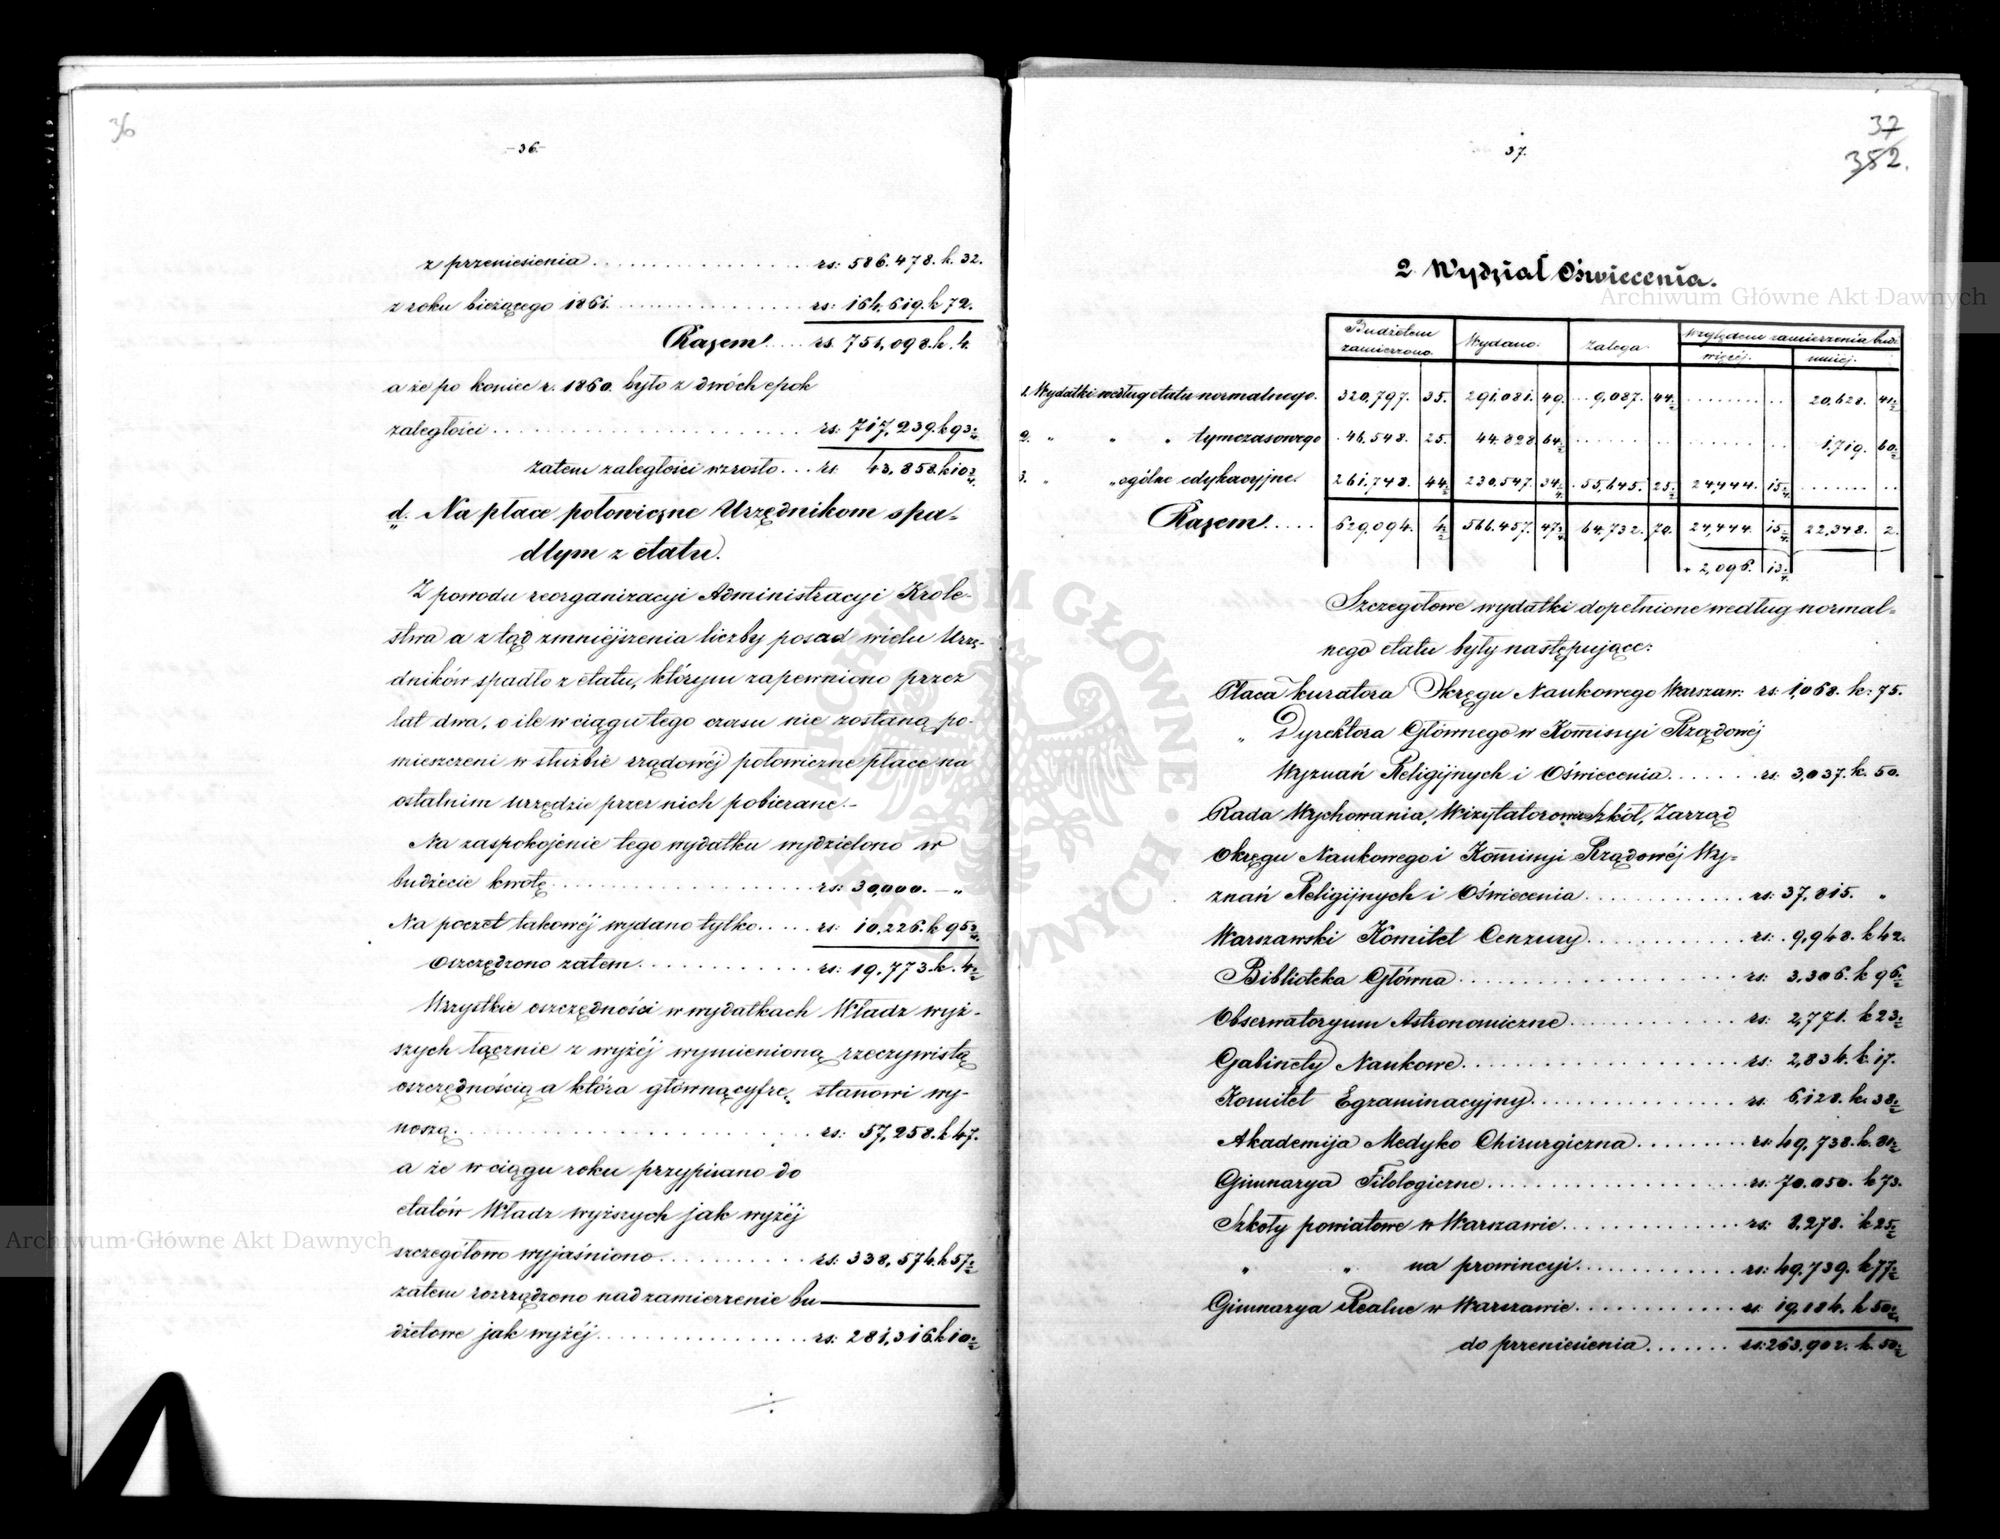 36
- 36 -
z przeniesienia . . . . . rs: 586.478. k. 32.
z roku bieżącego 1861. . . . . rs: 164,619. k 72.
Razem . . . . rs. 751,098. k. 4.
a że po koniec r. 1860. było z dwóch epok
zaległości . . . . . rs: 717,239. k 93 1/2
zatem zaległości wzrosło . . . rs 43,858. k 10 2/4.
d. Na płace połowiczne Urzędnikom spa-
dłym z etatu.
Z powodu reorganizacyi Administracyi Króle-
stwa a z tąd zmniejszenia liczby posad wielu Urzę-
dników spadło z etatu, którym zapewniono przez
lat dwa, o ile w ciągu tego czasu nie zostaną po-
mieszczeni w służbie rządowéj połowiczne płace na
ostatnim urzędzie przez nich pobierane. -
Na zaspokojenie tego wydatku wydzielono w
budżecie kwotę . . . . . rs: 30,000. - „
Na poczet takowéj wydano tylko . . . . . rs: 10,226. k 95 1/2.
oszczędzono zatem . . . . . rs: 19.773. k. 4 1/2
Wszystkie oszczędności w wydatkach Władz wyż-
szych łącznie z wyżéj wymienioną rzeczywistą
oszczędnością a która główną cyfrę stanowi wy-
noszą . . . . . rs: 57,258. k 47.
a że w ciągu roku przypisano do
etatów Władz wyższych jak wyżéj
szczegółowo wyjaśniono . . . . . rs: 338,574. k 57 1/2
zatem rozrządzono nad zamierzenie bu-
dżetowe jak wyżéj . . . . . rs: 281,316. k 10 1/2
37
352.
37.
2 Wydział Oświecenia.
Budżetem zamierzono. Wydano: Zalega. Względem zamierzenia bud:
więcéj: mniéj:
1. Wydatki według etatu normalnego. 320,797. 35. 291.081. 49. . . 9,087. 44 1/2 . . . . . . . . . . 20,628. 41 1/2
2. „ „ „ tymczasowego . 46.548. 25. 44.828 64 1/2 . . . . . . . . . . . . . . . . . . 1.719. 60 1/2
3. „ „ ogólne edukacyjne. 261,748. 44 1/2 230.547. 34 1/4 . 55,645. 25 1/2 24,444. 15 3/4. . . . . . . . . .
Razem . . . . . 629,094. 4 1/2 566.457. 47 3/4 64,732. 70. 24,444. 15 3/4. 22,348. 2.
+ 2,096. 13 3/4.
Szczegółowe wydatki dopełnione według normal-
nego etatu były następujące:
Płaca kuratora Okręgu Naukowego Warszaw: rs: 1,068. k: 75.
„ Dyrektora Głównego w Kommisyi Rządowéj
Wyznań Religijnych i Oświecenia . . . . . . rs: 3,037. k. 50.
Rada Wychowania, Wizytatorowie Szkół, Zarząd
Okręgu Naukowego i Kommisyi Rządowéj Wy-
znań Religijnych i Oświecenia . . . . . rs: 37,815. „
Warszawski Komitet Cenzury . . . . . rs: 9,948. k 42.
Biblioteka Główna . . . . . rs: 3,306. k 96 1/2
Obserwatoryum Astronomiczne . . . . . rs: 2,771. k 23 1/2
Gabinety Naukowe . . . . . rs: 2,834. k. 17.
Komitet Egzaminacyjny . . . . . rs. 6,128. k. 38 1/2
Akademija Medyko Chirurgiczna . . . . . rs: 49,738. k. 80 1/2
Gimnazya Filologiczne . . . . . rs: 70.050. k 73.
Szkoły powiatowe w Warszawie . . . . . rs: 8,278. k 25 1/2
„ „ na prowincyi . . . . . rs: 49.739. k 77 1/2
Gimnazya Realne w Warszawie . . . . . rs 19,184. k 50 1/2.
do przeniesienia . . . . . rs: 263.902. k. 50 1/2
Archiwum Główne Akt Dawnych
Archiwum Główne Akt Dawnych
ARCHIWUM GŁÓWNE AKT DAWNYCH